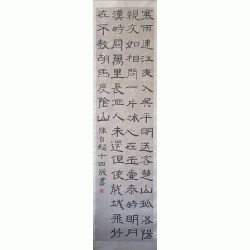 寒雨連江夜入吳平明送客楚山孤洛陽
親友如相問一片冰心在玉壺秦時明月
漢時關萬里長征人未還但使龍城飛將
在不教胡馬度陰山 陳自超十四歲書